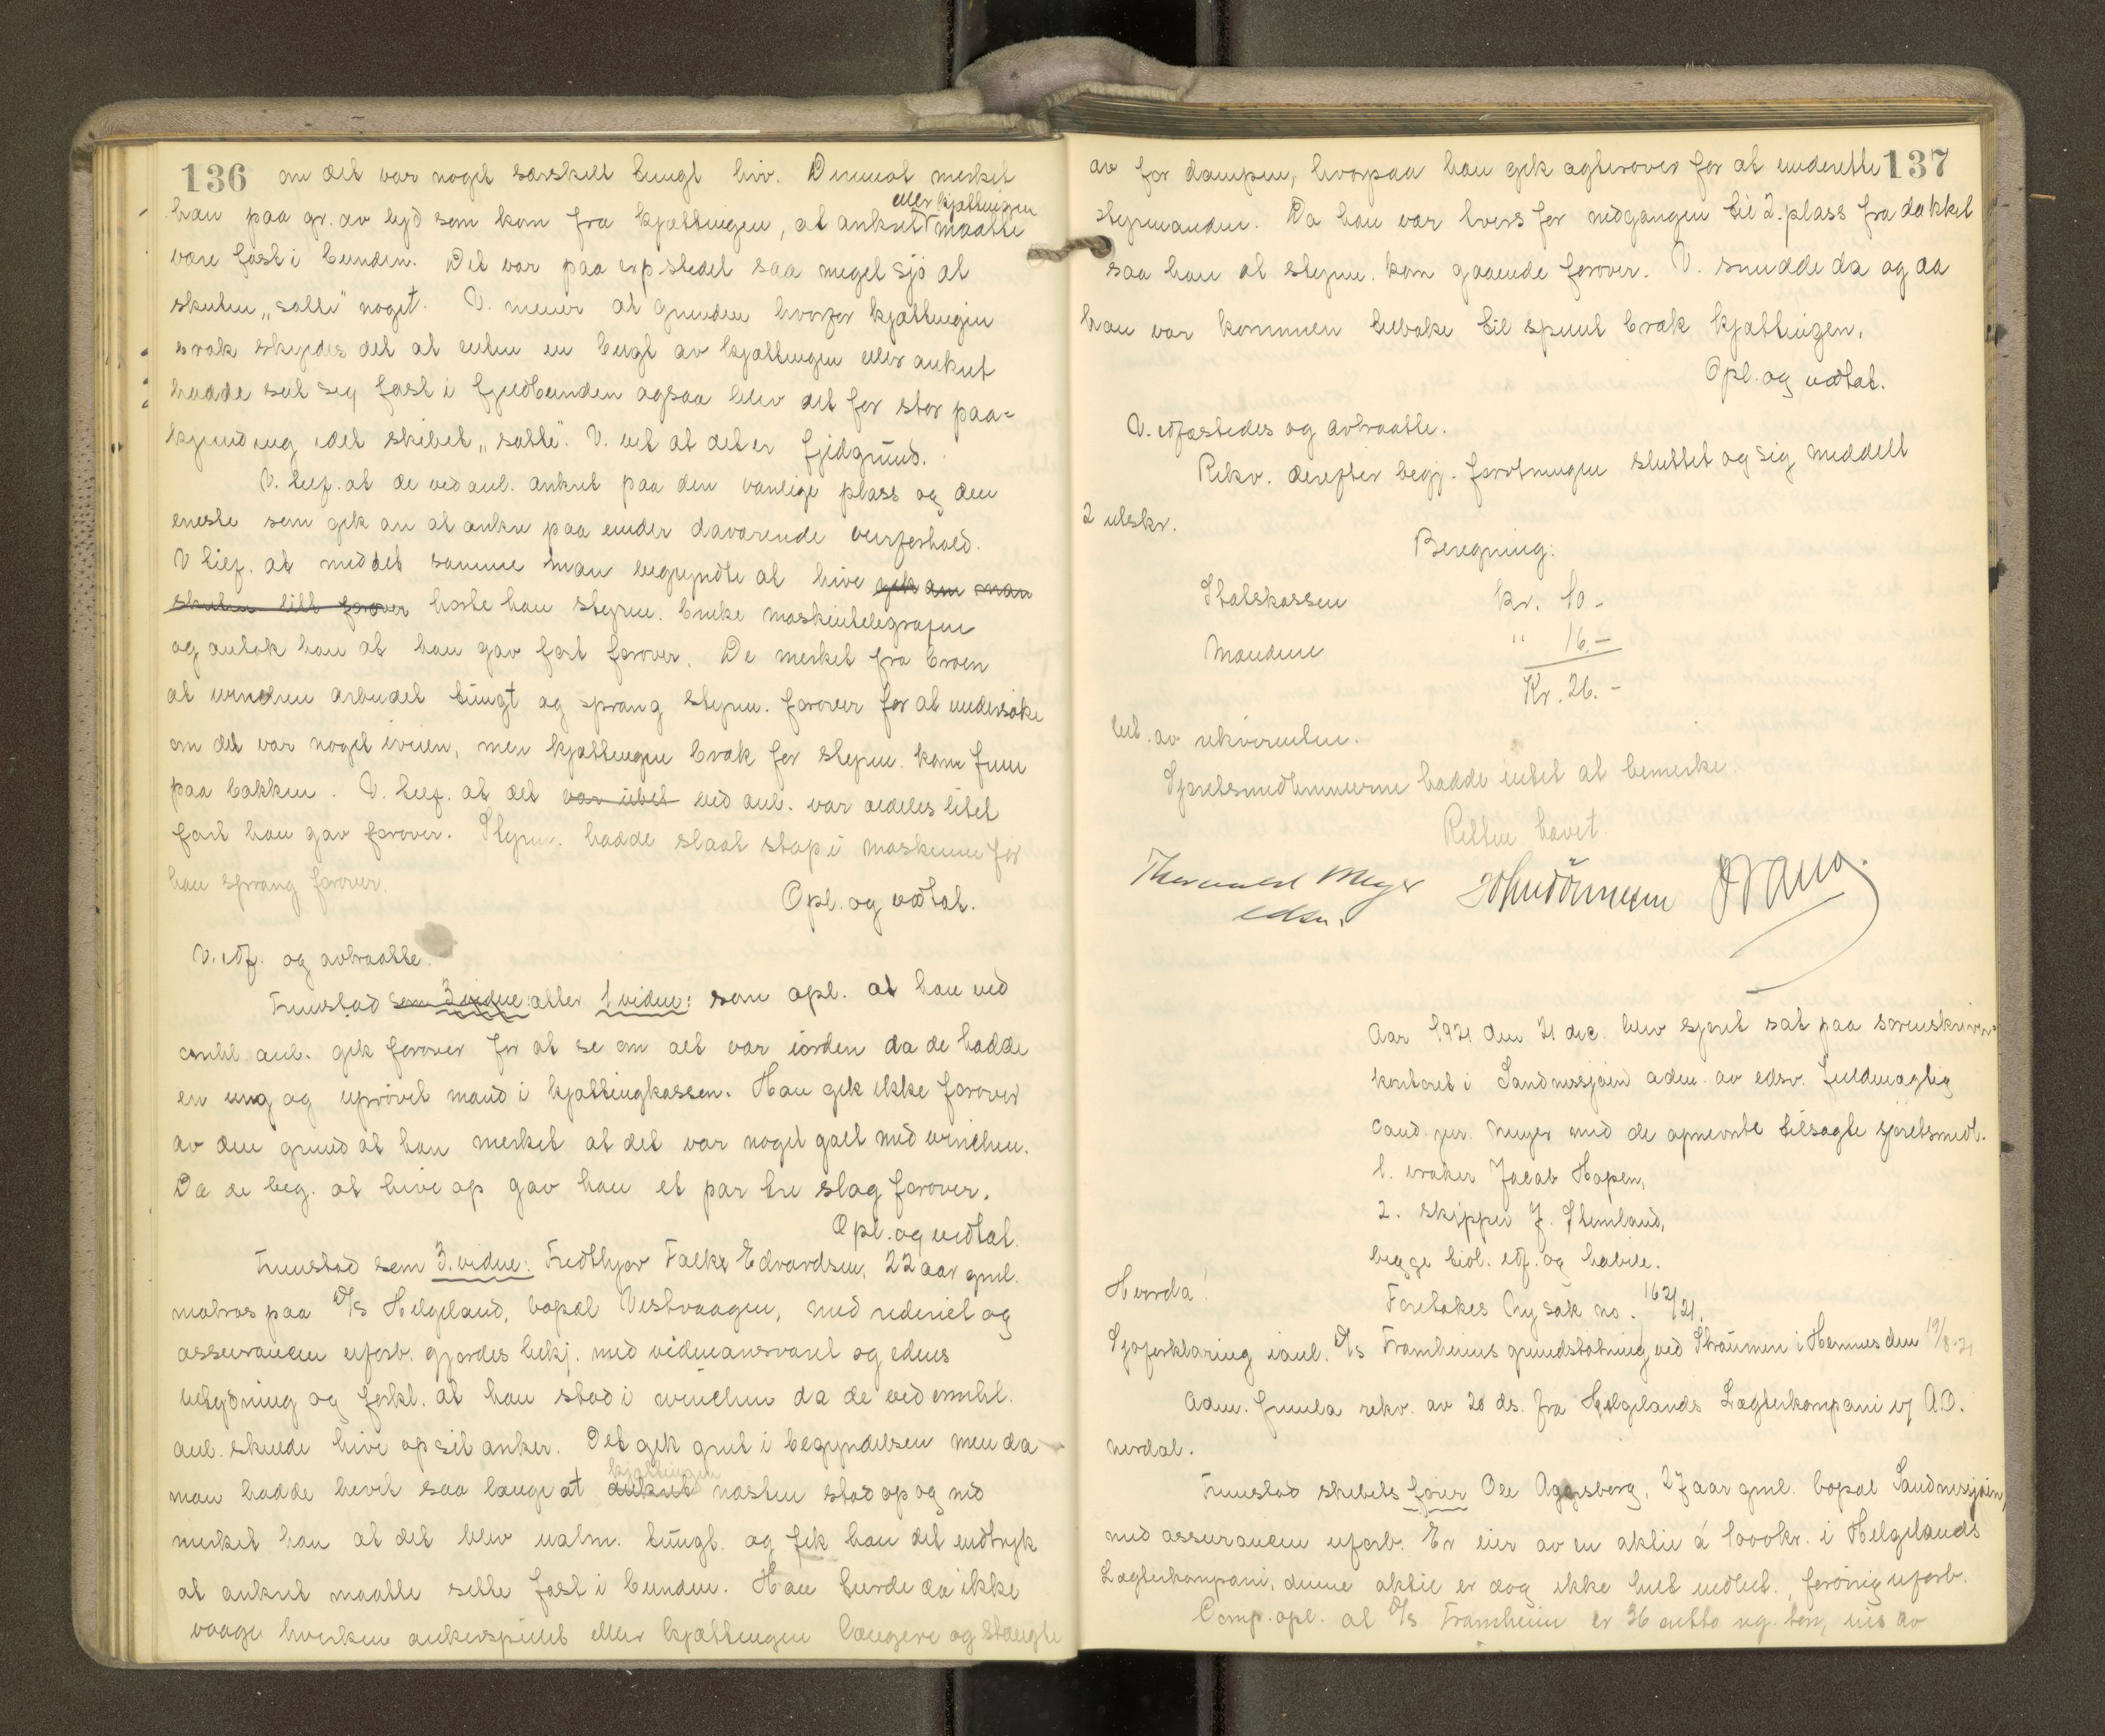 136
om det var noget særskilt tungt hiv. Derimot merket
eller kjættingen
han paa gr. av lyd som kom fra kjættingen, at ankret maatte
være fast i bunden. Det var paa exp.stedet saa meget sjø at
skuten "satte" noget. V. mener at grunden hvorfor kjættingen
brak skyldes det at enten en bugt av kjættingen eller ankret
hadde sat sig fast i fjeldbunden ogsaa blev det for stor paa-
kjending idet skibet "satte". V. vet at det er fjeldgrund.
V. tilf. at de ved anl. ankret paa den vanlige plass og den
eneste som gik an at ankre paa under daværende veirforhold.
V tilf. at med det samme man begyndte at hive gik an man
skuten litt forover hørte han styrm. bruke maskintelegrafen
og antok han at han gav fart forover. De merket fra broen
at winchen arbeidet tungt og sprang styrm. forover for at undersøke
om det var noget iveien, men kjættingen brak før styrm. kom frem
paa bakken. V. tilf. at det var litet ved anl. var aldeles litet
fart han gav forover. Styrm. hadde slaat stop i maskinen før
han sprang forover.
Opl. og vedtat.
V. edf. og avtraatte.
Fremstod som 3 vidne: atter 1 vidne: som opl. at han ved
omhl. anl. gik forover for at se om alt var iorden da de hadde
en ung og uprøvet mand i kjættingkassen. Han gik ikke forover
av den grund at han merket at det var noget galt med winchen.
Da de beg. at hive op gav han et par tre slag forover.
Opl. og vedtat.
Fremstod som 3. vidne: Fredthjov Falk Edvardsen, 22 aar gml.
matros paa D/S Helgeland, bopæl Vestvaagen, med rederiet og
assurancen uforb. gjordes bekj. med vidneansvaret og edens
betydning og forkl. at han stod i winchen da de ved omhl.
anl. skulde hive op sit anker. Det gik greit i begyndelsen men da
kjættingen
man hadde hevet saa længe at ankret næsten stod op og ned
merket han at det blev ualm. tungt og fik han det indtryk
at ankret maatte sitte fast i bunden. Han turde da ikke
vaage hverken ankerspillet eller kjættingen længere og stængte
137
av for dampen, hvorpaa han gik agterover for at underrette
styrmanden. Da han var tvers for nedgangen til 2. plass fra dækket
saa han at styrm. kom gaaende forover. V. snudde da og da
han var kommen tilbake til spillet brak kjættingen.
Opl. og vedtat.
V. edfæstedes og avtraatte.
Rekv. derefter begj. forretningen sluttet og sig meddelt
2 utskr.
Beregning:
Statskassen kr. 10.-
Mændene " 16.-
Kr. 26.-
bet. av rekvirenten.
Sjøretsmedlemmerne hadde intet at bemerke.
Retten hævet.
Thorvald Meyer
edsv.
Aar 1921 den 21 dec. blev sjøret sat paa sorenskriver-
kontoret i Sandnessjøen adm. av edsv. fuldmægtig
cand. jur. Meyer med de opnevnte tilsagte sjøretsmedl.
1. vraker Jacob Hopen,
2. skipper J. Stemland,
begge tidl. edf. og habile.
Hvorda!
Foretokes Ny sak no. 162/21.
Sjøforklaring ianl. D/S Framheims grundstøtning ved Straumen i Hemnes den 19/8-21
Adm. freml. rekv. av 20 ds. fra Helgelands Lægterkompani v/ A.O.
Nerdal.
Fremstod skibets fører Ole Aggersborg, 27 aar gml. bopæl Sandnessjøen,
med assurancen uforb. Er eier av en aktie á 1000 kr. i Helgelands
Lægterkompani, denne aktie er dog ikke helt indbet., forøvrig uforb.
Comp. opl. at D/S Framheim er 36 netto reg. ton, eies av